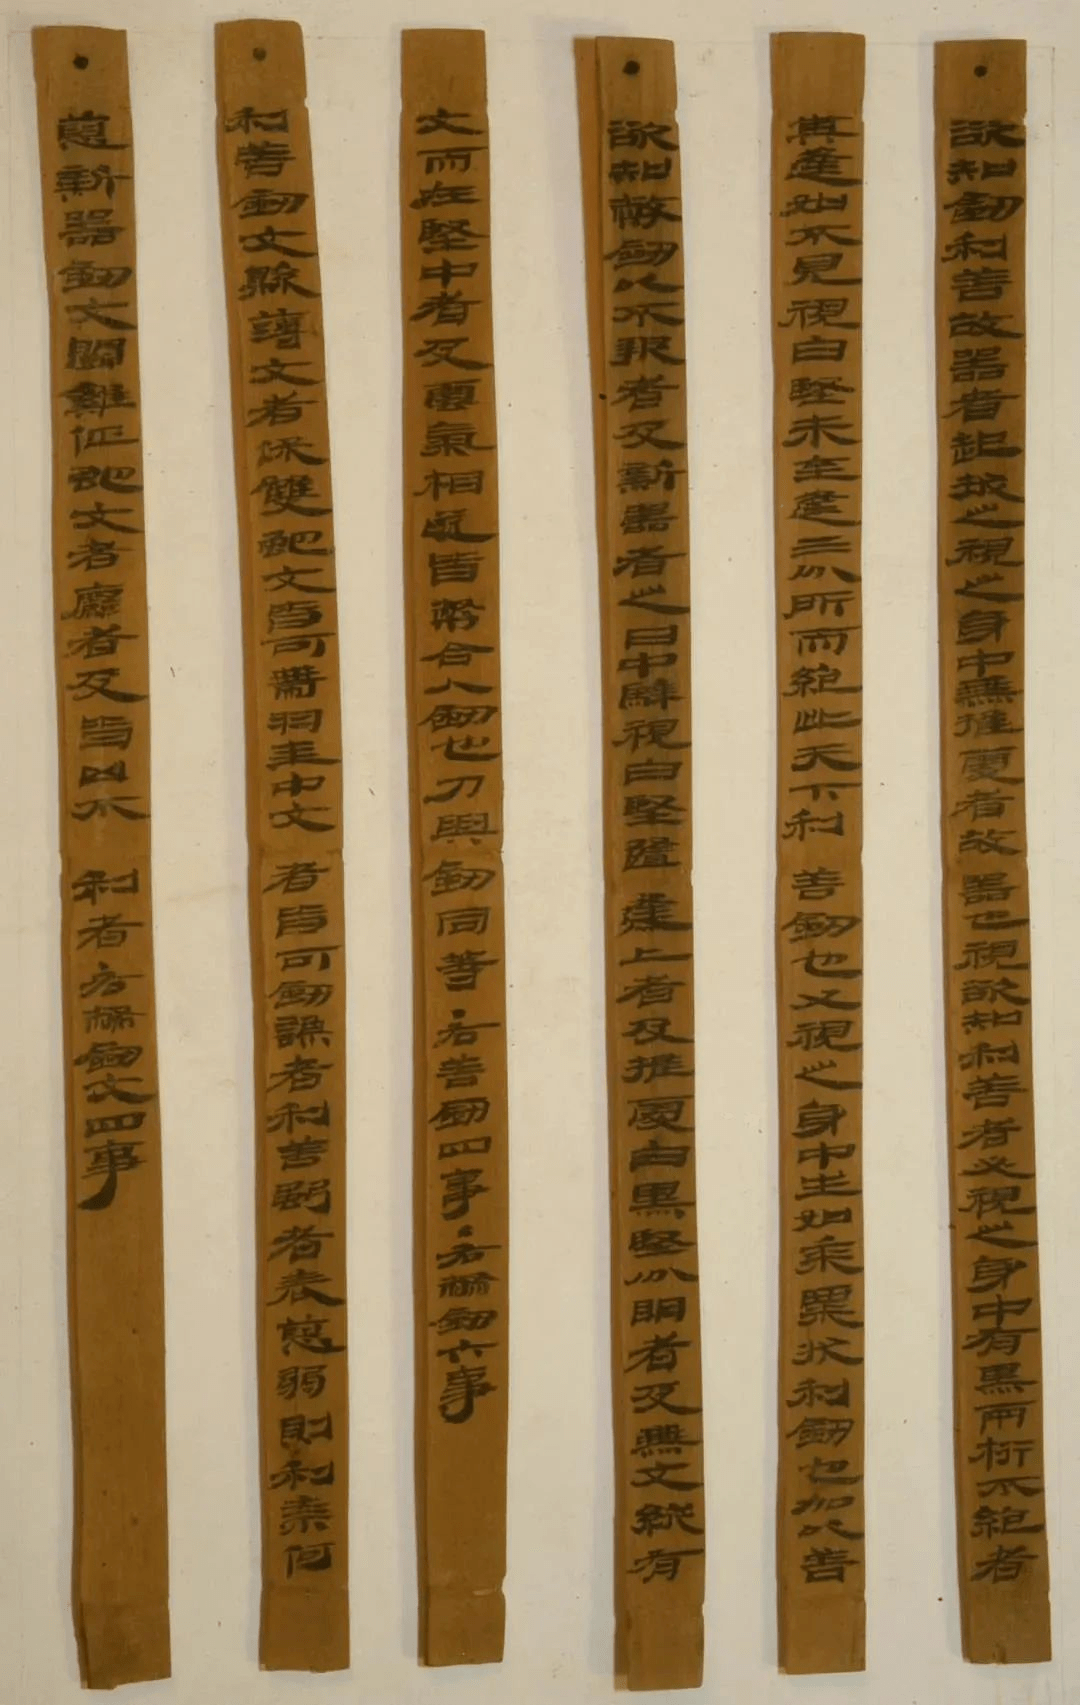 欲知劍利善故器者起拔之視之身中無推處者故器也視欲知利善者必視之身中有黑兩桁不絕者
其逢如不見視白堅未至逢三分所而絕此天下利善劍也又視之身中生如黍粟狀利劍也加以善
欲知幣劍以不報者及新器者之日中騂視白堅隨逢上者及推處白黑堅分明者及無文縱有
文而在堅中者及雲氣相遂皆幣合人劍也刀與劍同等・右善劍四事・右幣劍六事
利善劍文縣薄文者保雙蛇文皆可帶羽圭中文者皆可劍謙者利善強者表惡弱則利奈何
惡新器劍文鬭雞佂蛇文者麤者及皆凶不利者右幣劍文四事